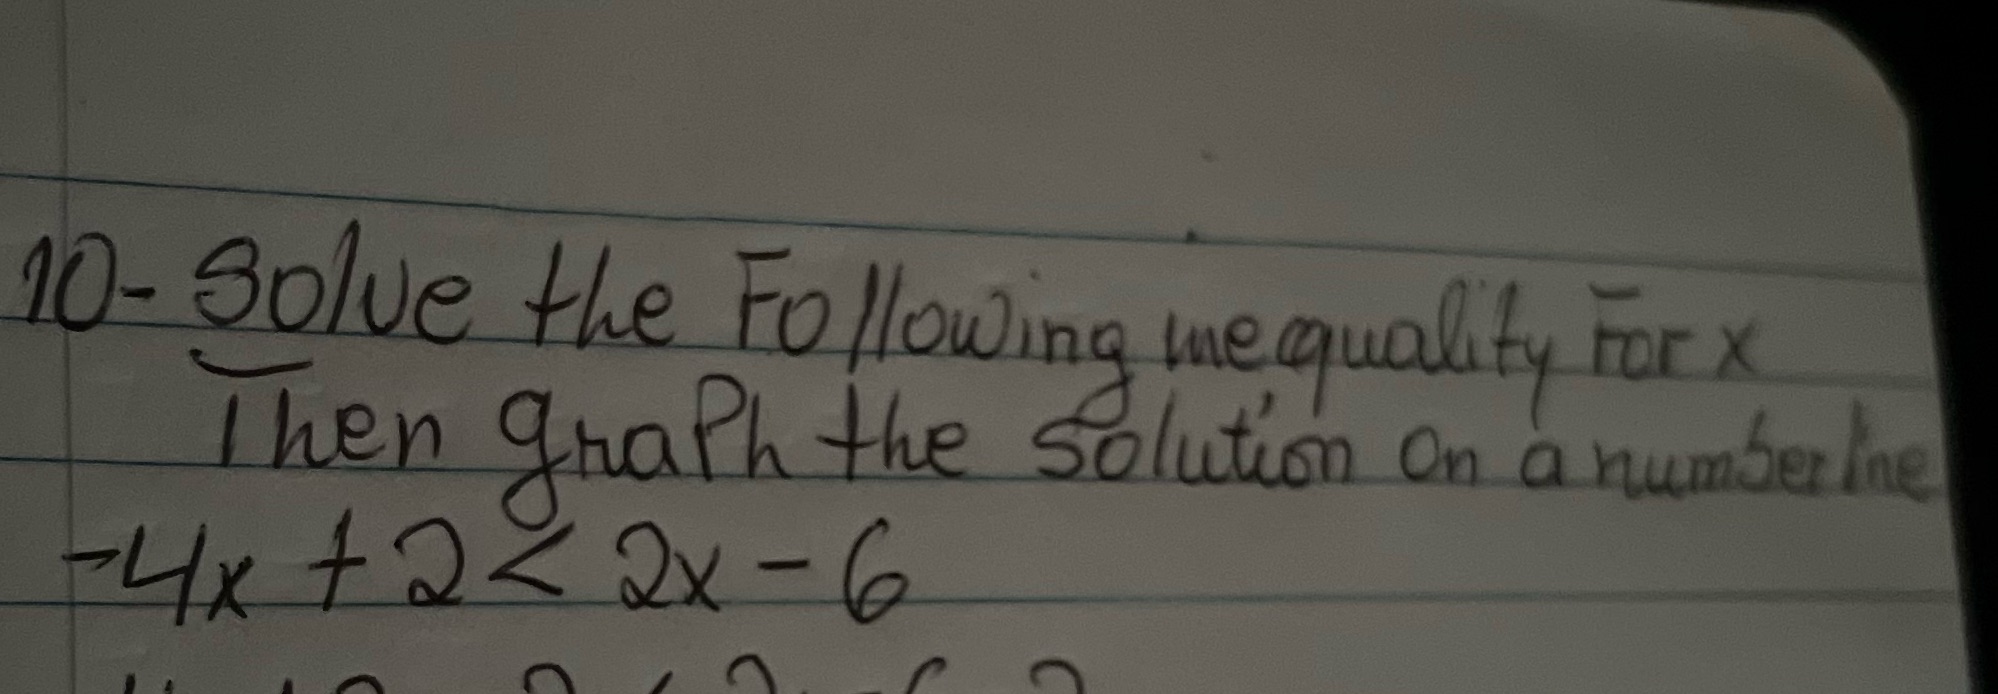 10- Solve the Following inequality For x
Then graph the solution on a number line
-4x + 2 < 2x - 6